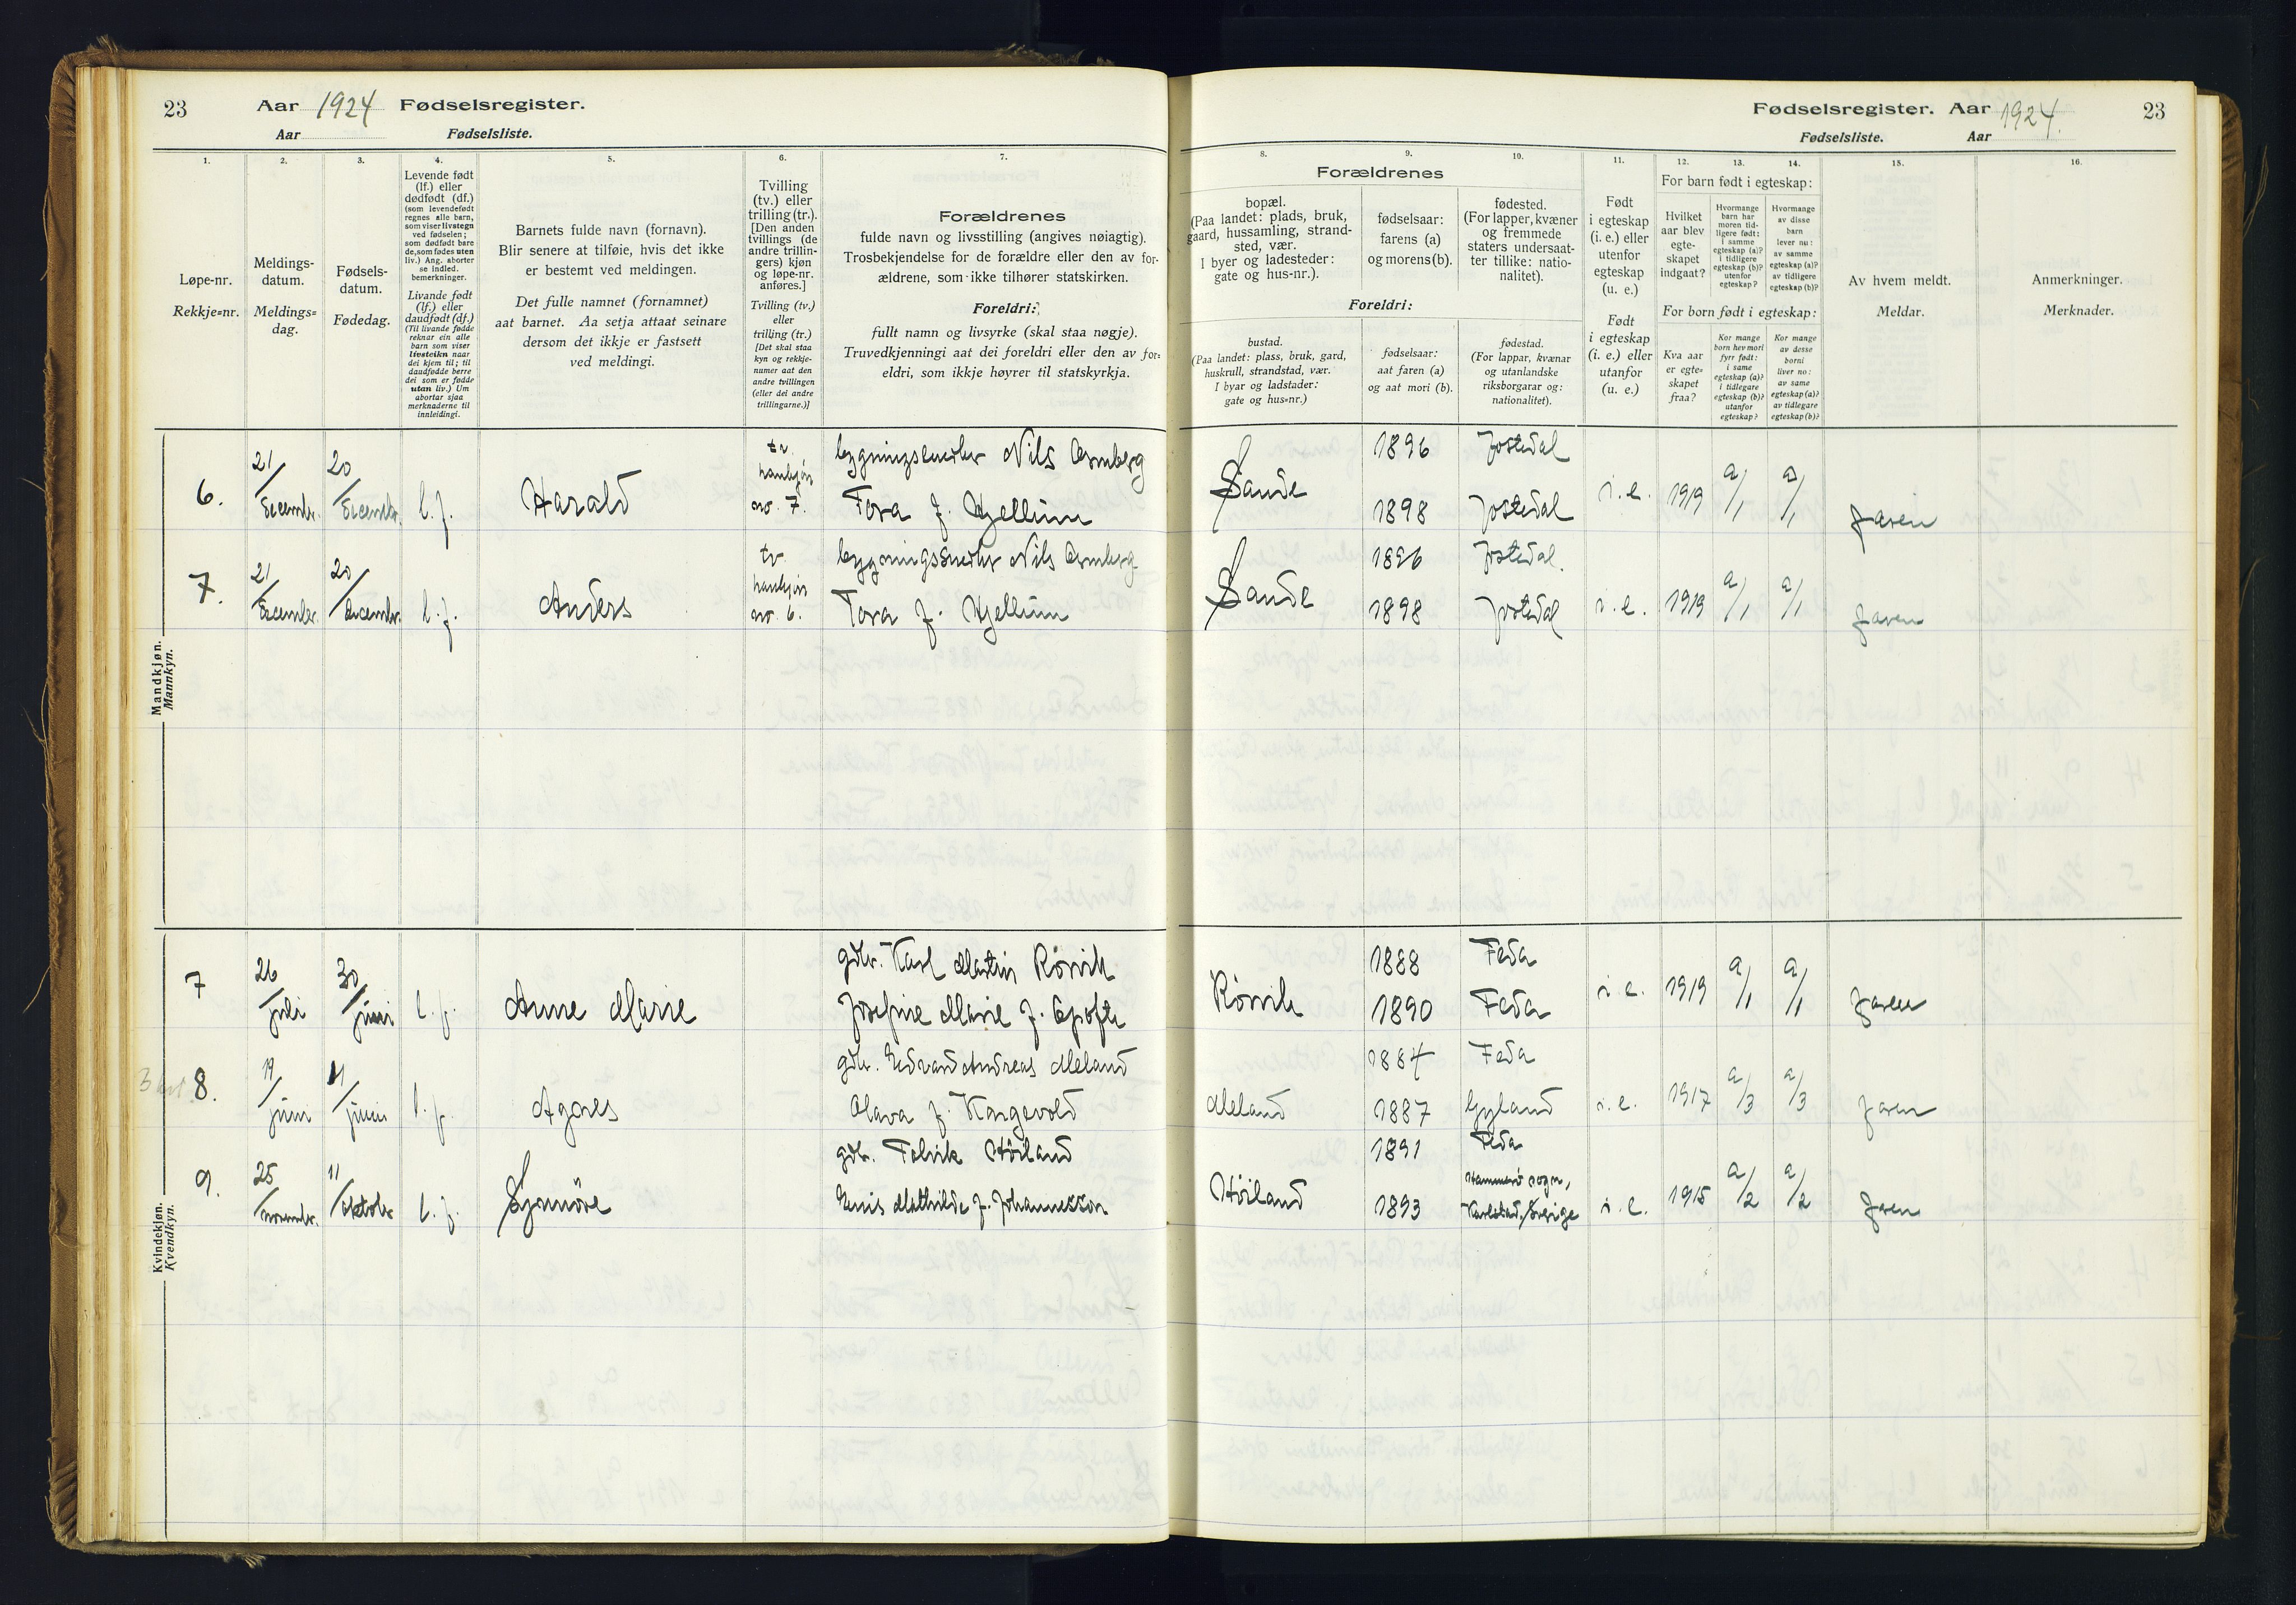 23 Aar 1924 Fødselsregister.
Aar Fødselsliste.
Fødselsregister. Aar 1924. 23
Fødselsliste. Aar
1. 2. 3. 4. 5. 6. 7. 8. 9. 10. 11. 12. 13. 14. 15. 16.
Løpe-nr.
Rekkje=nr.
Meldings-
datum.
Meldings=
dag.
Fødsels-
datum.
Fødedag.
Levende født
(lf.) eller
dødfødt (df.)
(som levendefødt
regnes alle barn,
som viser livstegn
ved fødselen;
som dødfødt bare
de, som fødes uten
liv.) Ang. aborter
se indled.
bemerkninger.
Livande født
(lf.) eller
daudfødt (df.)
(Til livande fødde
reknar ein alle
barn som viser
livsteikn naar
dei kjem til; til
daudfødde berre
dei som er fødde
utan liv.) Um
abortar sjaa
merknaderne til
innleidingi.
Barnets fulde navn (fornavn).
Blir senere at tilføie, hvis det ikke
er bestemt ved meldingen.
Det fulle namnet (fornamnet)
aat barnet. Aa setja attaat seinare
dersom det ikkje er fastsett
ved meldingi.
Tvilling
(tv.) eller
trilling (tr.).
[Den anden
tvillings (de
andre trillin-
gers) kjøn
og løpe-nr.
anføres.]
Tvilling (tv.)
eller
trilling (tr.)
[Det skal staa
kyn og rekkje-
numer aat den
andre tvillingen
(eller dei andre
trillingarne.)]
Forældrenes
fulde navn og livsstilling (angives nøiagtig).
Trosbekjendelse for de forældre eller den av for-
ældrene, som ikke tilhører statskirken.
Foreldri:
fullt namn og livsyrke (skal staa nøgje).
Truvedkjenningi aat dei foreldri eller den av for=
eldri, som ikkje høyrer til statskyrkja.
Forældrenes
bopæl.
(Paa landet: plads, bruk,
gaard, hussamling, strand-
sted, vær.
I byer og ladesteder:
gate og hus-nr.).
fødselsaar:
farens (a)
og morens (b).
fødested.
(For lapper, kvæner
og fremmede
staters undersaat-
ter tillike: natio-
nalitet).
Foreldri:
bustad.
(Paa landet: plass, bruk, gard,
huskrull, strandstad, vær.
I byar og ladstader:
gate og hus=nr.)
fødselsaar:
aat faren (a)
og aat mori (b).
fødestad.
(For lappar, kvænar
og utanlandske
riksborgarar og:
nationalitet).
Født
i egteskap
(i. e.) eller
utenfor
egteskap
(u. e.)
Født
i egteskap
(i. e.) eller
utanfor
(u. e.)
For barn født i egteskap:
Hvilket
aar blev
egte-
skapet
indgaat?
Hvormange
barn har
moren tid-
ligere født:
i samme
egteskap (a)?
i tidligere
egteskap (b)?
utenfor
egteskap?
Hvormange
av disse
barn
lever nu:
av samme
egteskap (a)?
av tidligere
egteskap (b)?
For born født i egteskap:
Kva aar
er egte=
skapet
fraa?
Kor mange
born hev mori
fyrr født:
i same
egteskap (a)?
i tidlegare
egteskap (b)?
utanfor
egteskap?
Kor mange
av desse
borni
liver no:
av same
egteskap (a)?
av tidlegare
egteskap (b)?
Av hvem meldt.
Meldar.
Anmerkninger.
Merknader.
Mandkjøn.
Mannkyn.
6. 21/December. 20/December. l. f. Harald tv. hankjøn no. 7. Nils
Tora f. Kjellum Sande 1896 Jostedal 1898 Jostedal i. e. 1919 a/1 a/1 faren
7. 21/December. 20/December. l. f. Anders tv. hankjøn no. 6. Nils
Tora f. Kjellum Sande 1896 Jostedal. 1898 Jostedal i. e. 1919 a/1 a/1 faren
Kvindekjøn.
Kvendkyn.
7 26/juli 30/juni l. f. Anne Marie gdbr. Karl Martin Rørvik
Josefine Marie f. Rørvik 1888 Feda 1890 Feda i. e. 1919 a/1 a/1 faren
8. 19/juni 11/juni l. f. Agnes gdbr. Edvard Andreas Meland
Olava f. Kongevold Meland 1884 Feda 1887 Gyland i. e. 1917 a/3 a/3 faren
9. 25/november. 11/oktober l. f. Synnöve gdbr. Høiland
Mathilde f. Johannesson Høiland 1891 Feda 1893 Hammarö sogn, Karlstad, Sverige i. e. 1915 a/2 a/2 faren